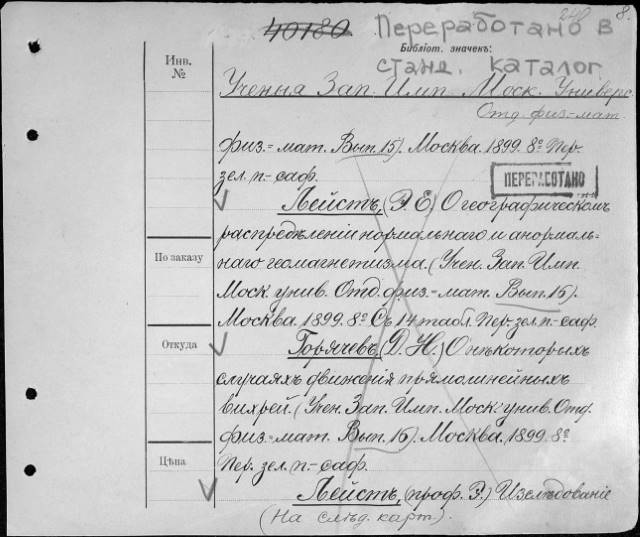 40180 Переработано в 240 8.
Инв. №
Библіот. значекъ:
станд. каталог
Ученыя Зап. Имп. Моск. Универс.
Отд. физ.-мат.
физ.-мат. Вып. 15). Москва. 1899. 8º Пер.
зел. п.-саф.
ПЕРЕРАБОТАНО
Лейстъ, (Э. Е.) О географическомъ
распредѣленіи нормальнаго и анормаль-
По заказу
наго геомагнетизма. (Учен. Зап. Имп.
Моск. унив. Отд. физ.-мат. Вып. 15).
Москва. 1899. 8º Съ 14 табл. Пер. зел. п.-саф.
Откуда
Горячевъ, (Д. Н.) О нѣкоторыхъ
случаяхъ движенія прямолинейныхъ
вихрей. (Учен. Зап. Имп. Моск. унив. Отд.
физ.-мат. Вып. 16). Москва. 1899. 8º
Цѣна
Пер. зел. п.-саф.
Лейстъ, (проф. Э.) Изслѣдованіе
(На слѣд. карт.).